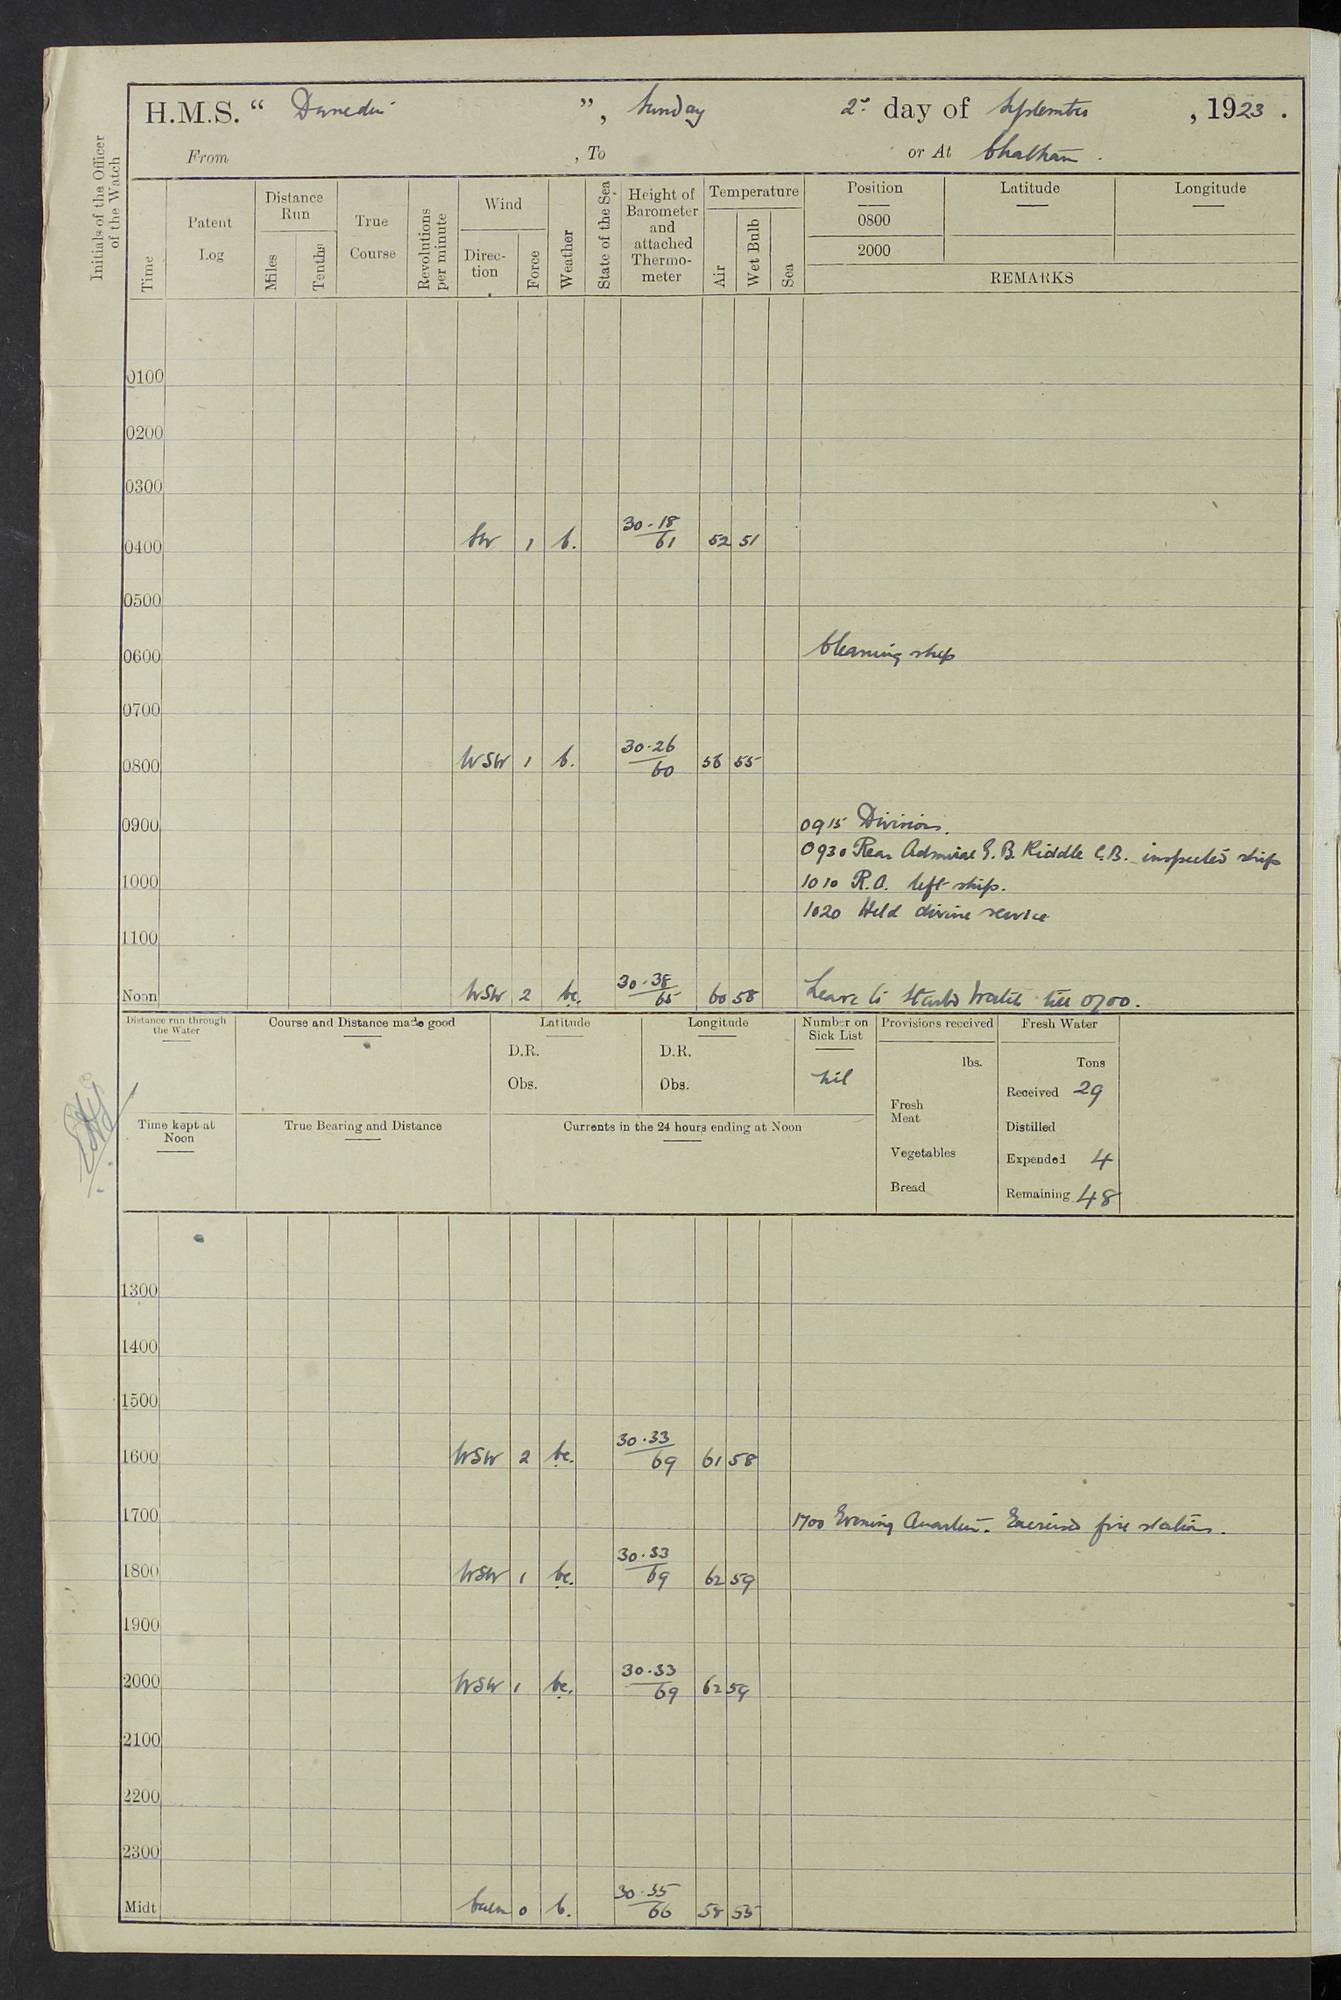 H.M.S. “ Dunedin ”, Sunday 2nd day of September, 1923.
From , To or At Chatham.
Initials of the Officer of the Watch
Time
Patent Log
Distance Run
Miles
Tenths
True Course
Revolutions per minute
Wind
Direction
Force
Weather
State of the Sea
Height of Barometer and attached Thermometer
Temperature
Air
Wet Bulb
Sea
Position Latitude Longitude
0800
2000
REMARKS
0100
0200
0300
0400 SW 1 b. 30.18/61 52 51
0500
0600 Cleaning ship
0700
0800 WSW 1 b. 30.26/60 56 55
0900 0915 Divisions.
0930 Rear Admiral E. B. Kiddle C.B. inspected ship
1000 1010 R.A. left ship.
1020 Held divine service
1100
Noon WSW 2 bc. 30.38/65 60 58 Leave to Starbd Watch till 0700.
Distance run through the Water
Course and Distance made good
Latitude
D.R.
Obs.
Longitude
D.R.
Obs.
Number on Sick List
nil
Provisions received
lbs.
Fresh Meat
Vegetables
Bread
Fresh Water
Tons
Received 29
Distilled
Expended 4
Remaining 48
Time kept at Noon
True Bearing and Distance
Currents in the 24 hours ending at Noon
1300
1400
1500
1600 WSW 2 bc. 30.33/69 61 58
1700 1700 Evening Quarters. Exercised fire stations.
1800 WSW 1 bc. 30.33/69 62 59
1900
2000 WSW 1 bc. 30.33/69 62 59
2100
2200
2300
Midt Calm 0 b. 30.35/66 58 55